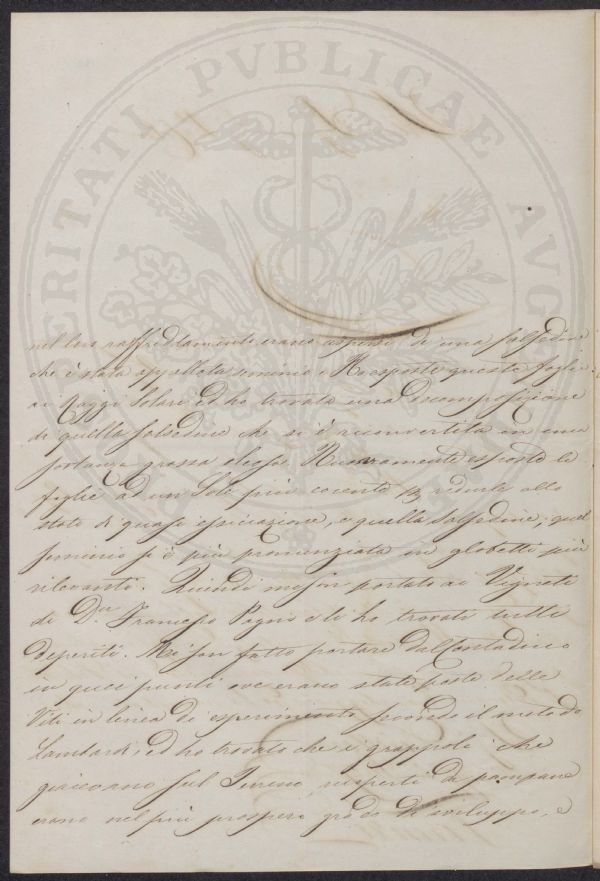 PROSPERITATI PVBLICAE AVGENDAE
nel loro raffreddamento erano aspersi di una salsedine
che è stata appellata seminio. Ho esposto queste foglie
ai Raggi Solari ed ho trovata vera decomposizione
di quella salsedine che si è riconvertita in una
sostanza grassa oleosa. Nuovamente esposte le
foglie ad un Sole più cocente per ridurle allo
stato di quasi essicazione, e quella Salsedine, quel
seminio si è più pronunziato in globetti più
rilevanti. Quindi mi son portato ai Vigneti
di Dn Francesco Pagni e li ho trovati tutti
deperiti. Mi son fatto portare dal Contadino
in quei punti ove erano state poste delle
Viti in linea di esperimento secondo il metodo
Lambardi, ed ho trovato che i grappoli che
giacevano sul Terreno coperti da pampane
erano nel più prospero grado di sviluppo, e